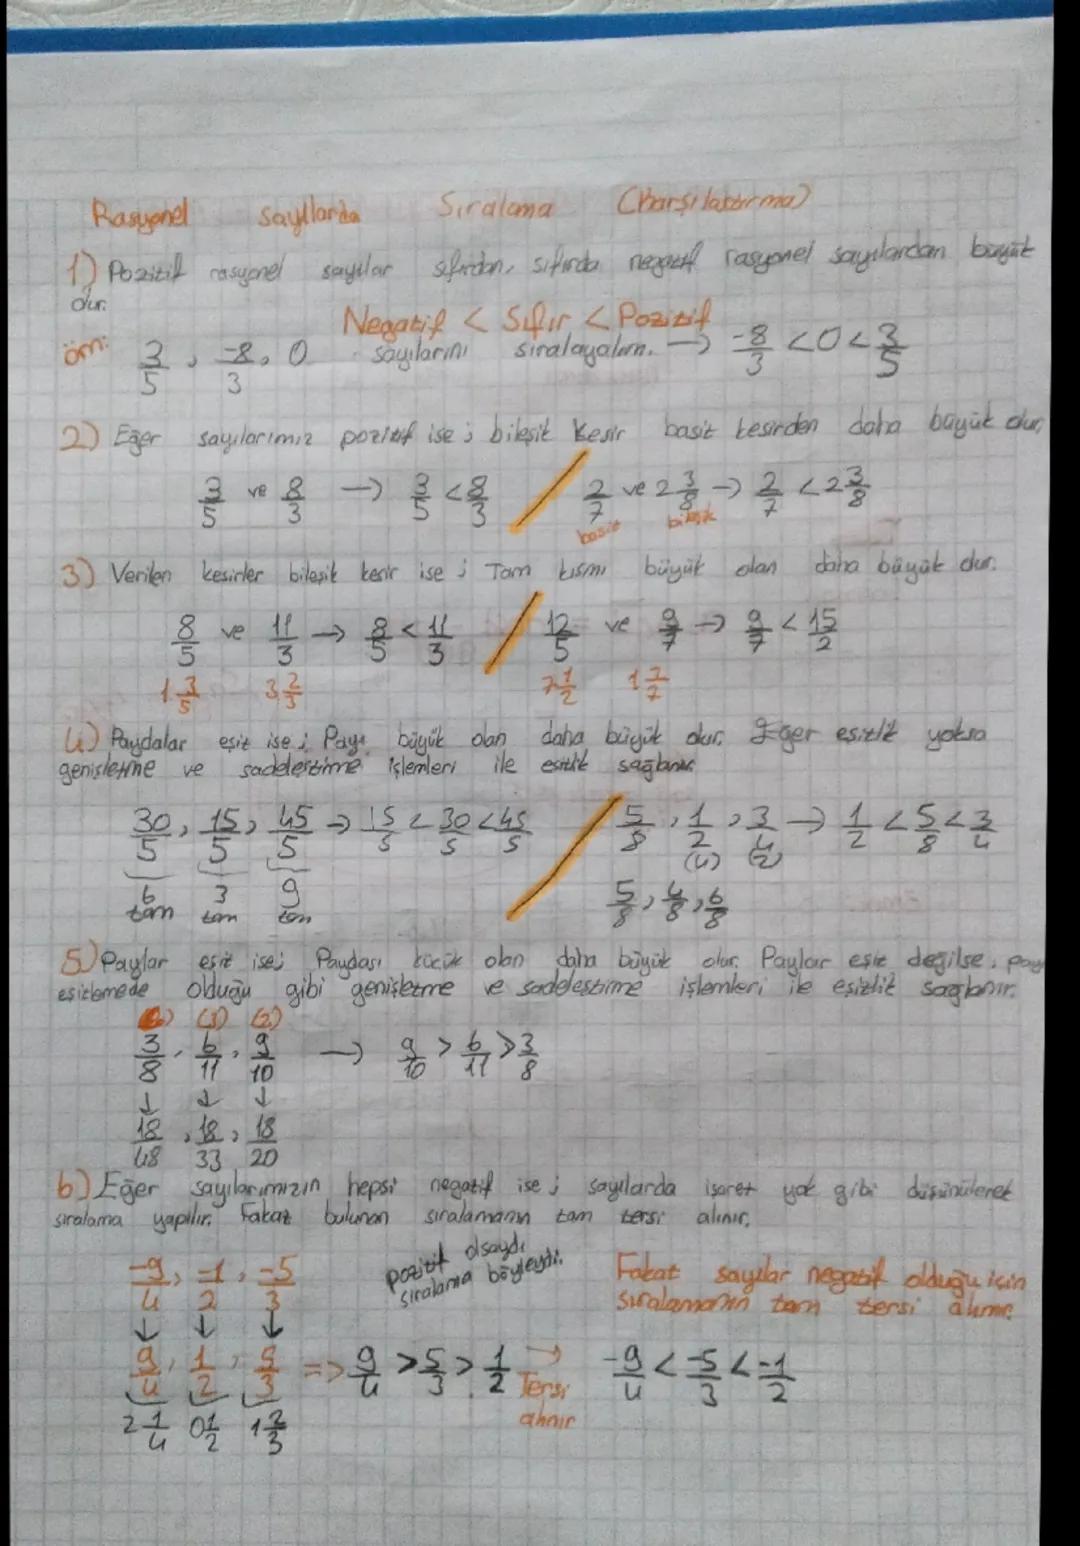 Rasyonel sayılarda Sıralama (Karşılaştırma)
1) Pozitif rasyonel sayılar sıfırdan, sıfırda negatif rasyonel sayılardan büyük
dur.
Negatif < Sıfır < Pozitif
örn: 3/5, -8/3, 0 sayılarını sıralayalım. → -8/3 < 0 < 3/5
2) Eğer sayılarımız pozitif ise ; bileşik kesir basit kesirden daha büyük olur,
3/5 ve 8/3 → 3/5 < 8/3 / 2/7 ve 2 3/8 → 2/7 < 2 3/8
basit bileşik
3) Verilen kesirler bileşik kesir ise ; Tam kısmı büyük olan daha büyük dur.
8/5 ve 11/3 → 8/5 < 11/3 / 12/5 ve 9/7 → 9/7 < 15/2
1 3/5 3 2/3 7 1/2 1 2/7
4) Paydalar eşit ise ; Payı büyük olan daha büyük olur. Eğer eşitlik yoksa
genişletme ve sadeleştirme işlemleri ile eşitlik sağlanır
30/5, 15/5, 45/5 → 15/5 < 30/5 < 45/5 / 5/8, 1/2, 3/4 → 1/2 < 5/8 < 3/4
(4) (2)
6 tam 3 tam 9 tam 5/8, 4/8, 6/8
5) Paylar eşit ise; Paydası küçük olan daha büyük olur. Paylar eşit değilse, pay
eşitlemede olduğu gibi genişletme ve sadeleştirme işlemleri ile eşitlik sağlanır.
(6) (3) (2)
3/8, 6/11, 9/10 → 9/10 > 6/11 > 3/8
↓ ↓ ↓
18/48, 18/33, 18/20
6) Eğer sayılarımızın hepsi negatif ise ; sayılarda işaret yok gibi düşünülerek
sıralama yapılır. Fakat bulunan sıralamanın tam tersi alınır.
-9/4, -1/2, -5/3
pozitif olsaydı
sıralama böyleydi.
Fakat sayılar negatif olduğu için
sıralamanın tam tersi alınır.
↓ ↓ ↓
9/4, 1/2, 5/3 => 9/4 > 5/3 > 1/2 → Tersi alınır -9/4 < -5/3 < -1/2
2 1/4 0 1/2 1 2/3